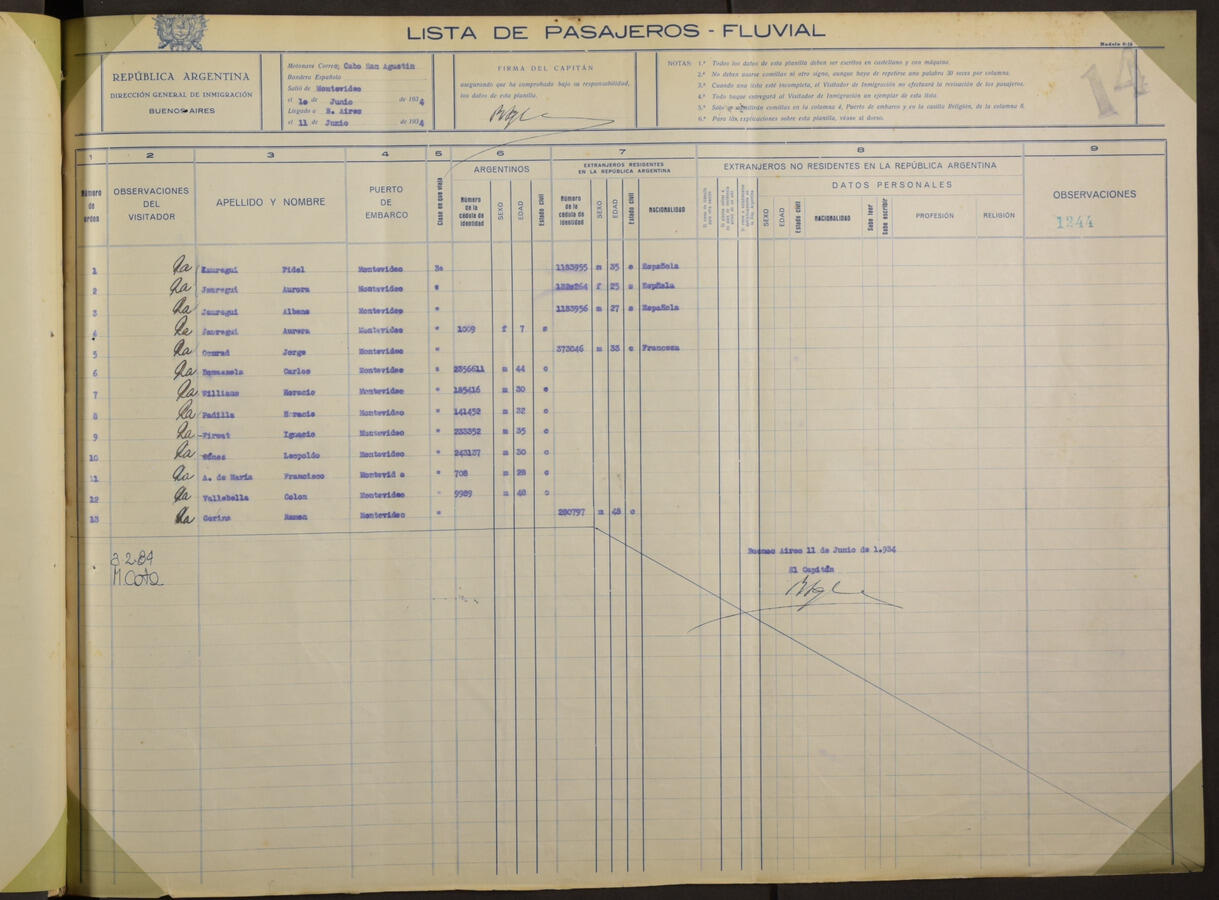 LISTA DE PASAJEROS - FLUVIAL
Modelo
REPÚBLICA ARGENTINA
DIRECCIÓN GENERAL DE INMIGRACIÓN
BUENOS AIRES
Motonave Correo; Cabo San Agustin
Bandera Española
Salió de Montevideo
el 10 de Junio de 1934
Llegado a B. Aires
el 11 de Junio de 1934
FIRMA DEL CAPITÁN
asegurando que ha comprobado bajo su responsabilidad,
los datos de esta planilla.
NOTAS: 1.ª Todos los datos de esta planilla deben ser escritos en castellano y con máquina.
2.ª No deben usarse comillas ni otro signo, aunque haya de repetirse una palabra 30 veces por columna.
3.ª Cuando una lista esté incompleta, el Visitador de Inmigración no efectuará la revisación de los pasajeros.
4.ª Todo buque entregará al Visitador de Inmigración un ejemplar de esta lista.
5.ª Sólo se admitirán comillas en la columna 4, Puerto de embarco y en la casilla Religión, de la columna 8.
6.ª Para las explicaciones sobre esta planilla, véase al dorso.
14
1 2 3 4 5 6 7 8 9
Número de orden
OBSERVACIONES DEL VISITADOR
APELLIDO Y NOMBRE
PUERTO DE EMBARCO
Clase en que viaja
ARGENTINOS
Número de la cédula de identidad SEXO EDAD Estado civil
EXTRANJEROS RESIDENTES EN LA REPÚBLICA ARGENTINA
Número de la cédula de identidad SEXO EDAD Estado civil NACIONALIDAD
EXTRANJEROS NO RESIDENTES EN LA REPÚBLICA ARGENTINA
DATOS PERSONALES
SEXO EDAD Estado civil NACIONALIDAD Sabe leer Sabe escribir PROFESIÓN RELIGIÓN
OBSERVACIONES
1244
1 Fidel Montevideo 3a 1183955 m 35 c Española
2 Jauregui Aurora Montevideo " f 25 s
3 Jauregui Albano Montevideo " 1183956 m 27 s Española
4 Jauregui Aurora Montevideo " 1009 f 7 s
5 Jorge Montevideo " 373046 m 33 c Francesa
6 Carlos Montevideo " 2356611 m 44 c
7 Williams Horacio Montevideo " 185416 m 30
8 Padilla Horacio Montevideo " 141452 m 32 c
9 Ignacio Montevideo " 233352 m 35 c
10 Leopoldo Montevideo " 243137 m 30 c
11 A. de Maria Francisco Montevid o " 708 m 28 c
12 Vallebella Colon Montevideo " 9989 m 48 c
13 Gerina Ramon Montevideo " 280797 m 48 c
Buenos Aires 11 de Junio de 1.934
El Capitán